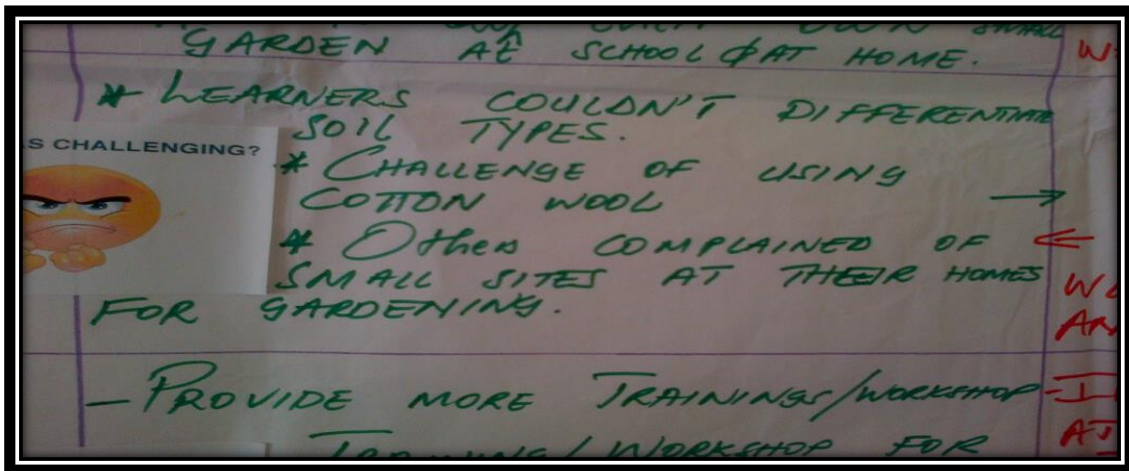 OWN SMALL
GARDEN AT SCHOOL & AT HOME.
* LEARNERS COULDN'T DIFFERENTIATE
SOIL TYPES.
S CHALLENGING?
* CHALLENGE OF USING
COTTON WOOL →
* Others COMPLAINED OF
SMALL SITES AT THEIR HOMES
FOR GARDENING.
- PROVIDE MORE TRAININGS/WORKSHOP
TRAINING/WORKSHOP FOR